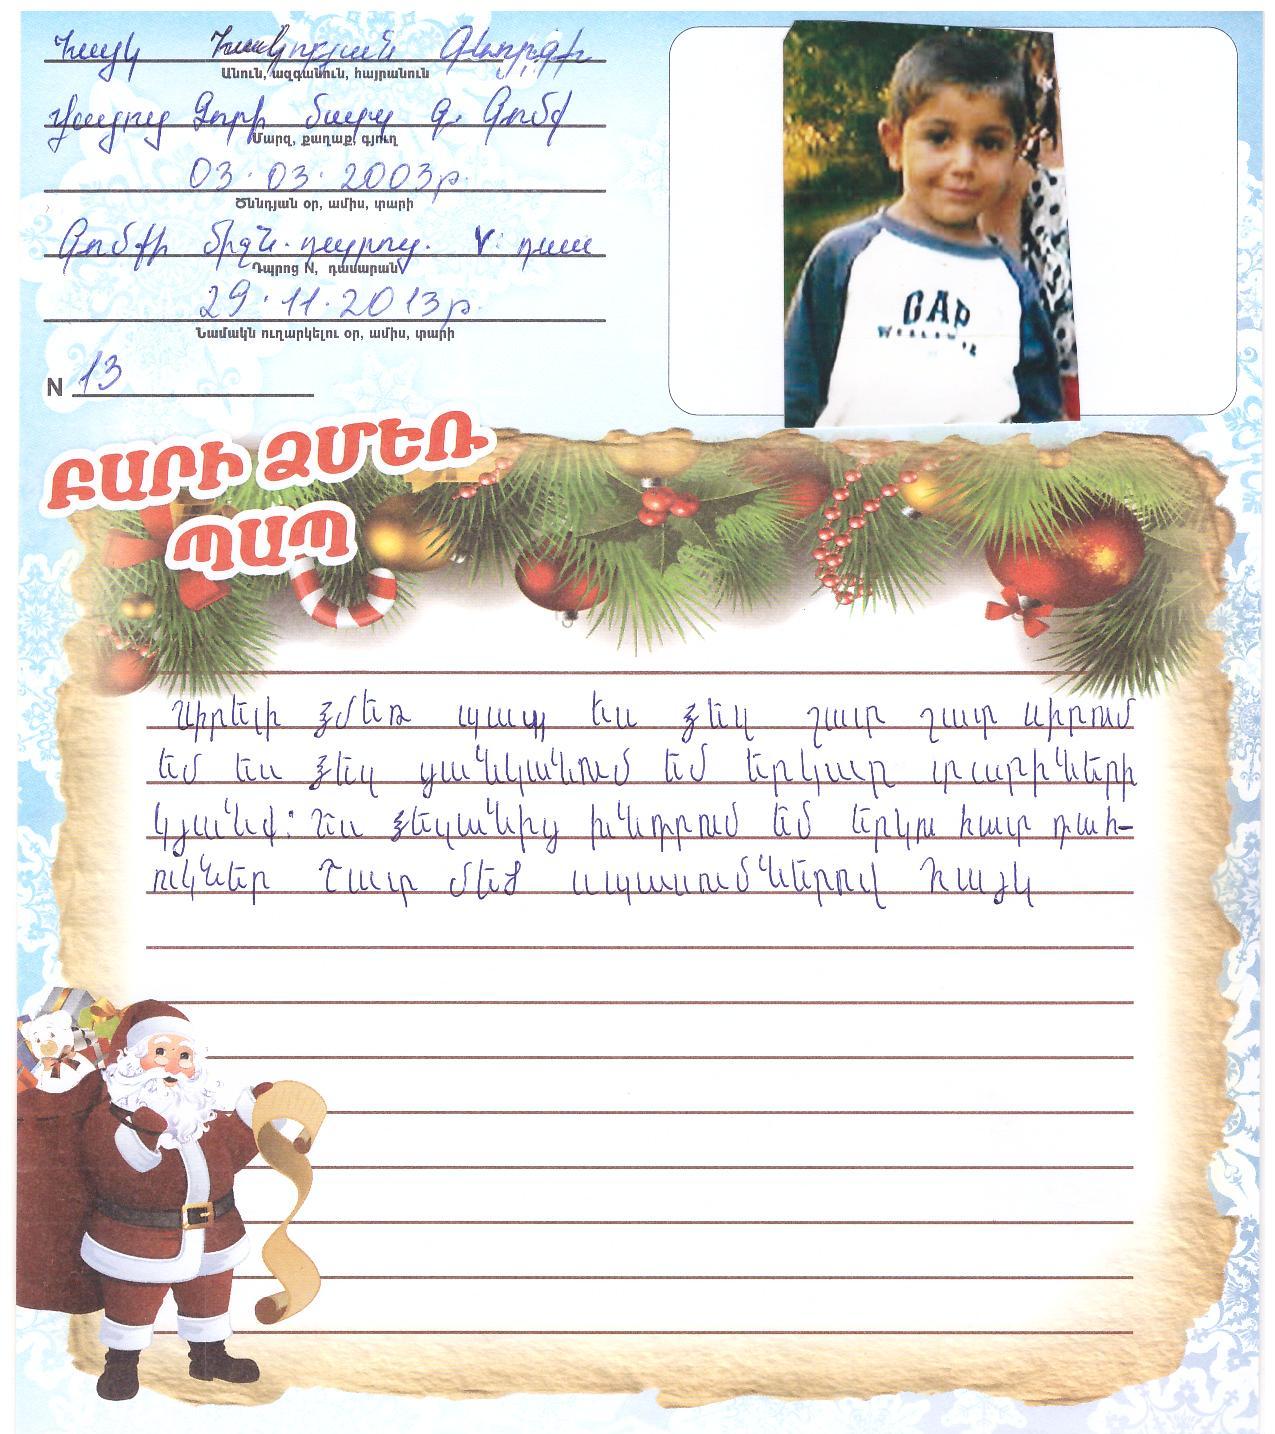 Հայկ Հակոբյան Գևորգի
Անուն, ազգանուն, հայրանուն
Վայոց Ձորի մարզ գ. Գոմք
Մարզ, քաղաք, գյուղ
03.03.2003թ.
Ծննդյան օր, ամիս, տարի
Գոմքի միջն. դպրոց. V դաս
Դպրոց N, դասարան
29.11.2013թ.
Նամակն ուղարկելու օր, ամիս, տարի
N 13
ԲԱՐԻ ՁՄԵՌ
ՊԱՊ
GAP
Սիրելի ձմեռ պապ ես ձեզ շատ շատ սիրում
եմ ես ձեզ ցանկանում եմ երկար տարիների
կյանք: Ես ձեզանից խնդրում եմ երկու հատ դահ-
ուկներ Շատ մեծ սպասումներով Հայկ